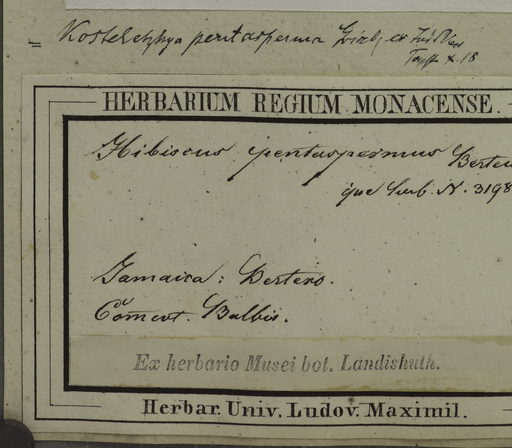 = Kosteletzkya pentasperma Griseb. ex
HERBARIUM REGIUM MONACENSE.
Hibiscus pentaspermus Berter
herb. N. 3198
Jamaica: Bertero.
Comevt. Balbis.
Ex herbario Musei bot. Landishuth.
Herbar. Univ. Ludov. Maximil.